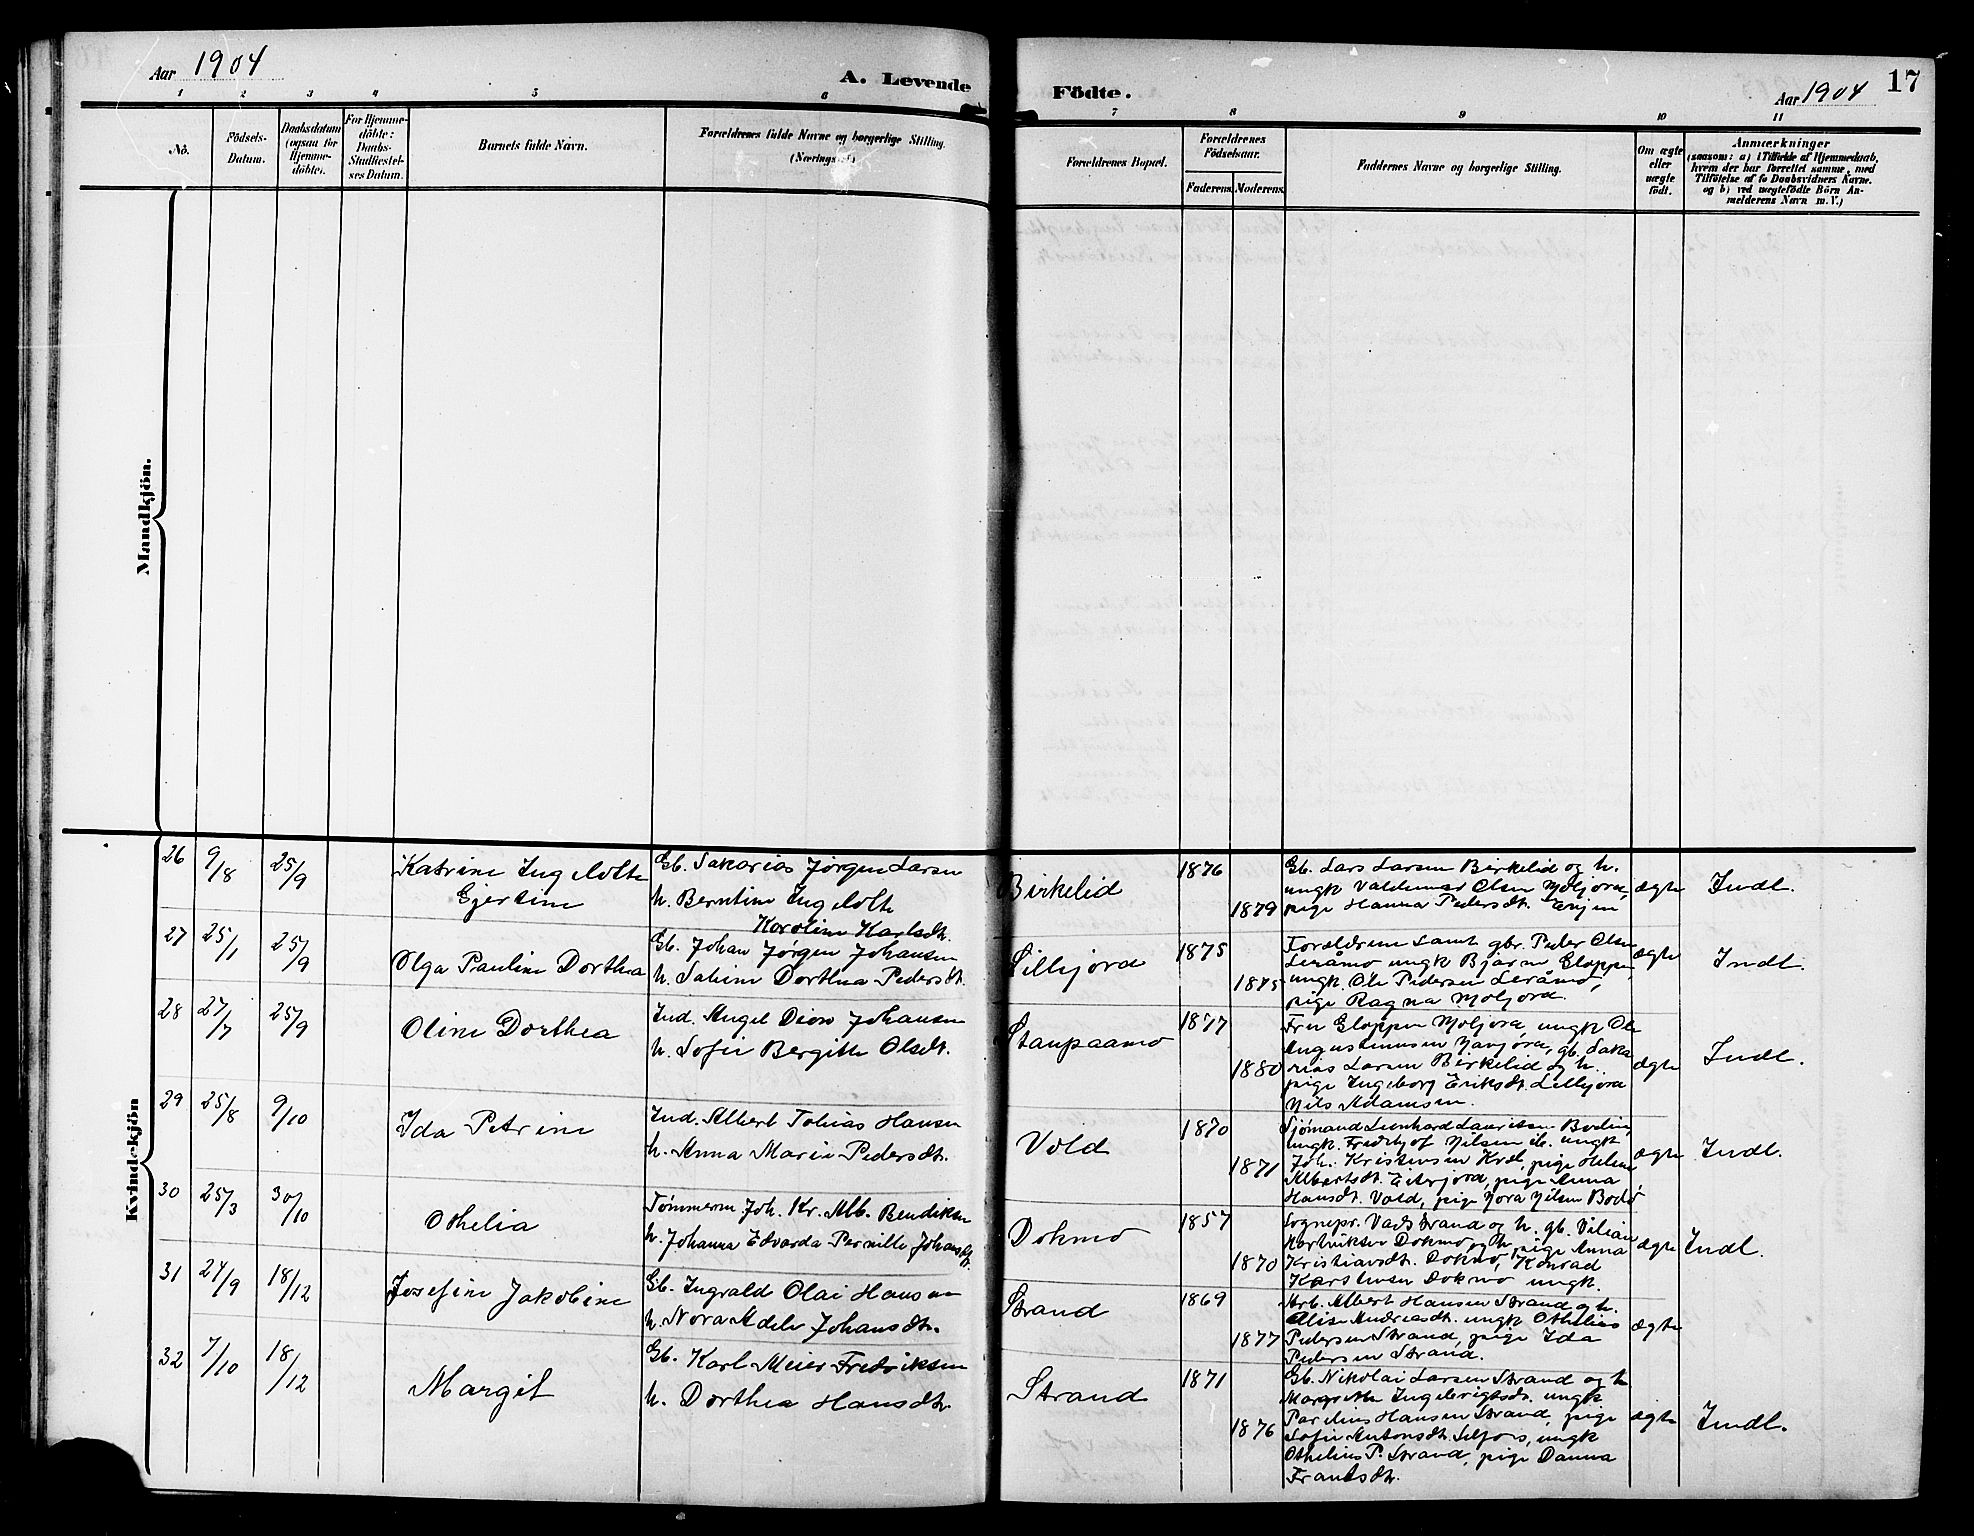 Aar 1904
A. Levende
Födte.
Aar 1904
17
1 2 3 4 5 6 7 8 9 10 11
No.
Födsels-
Datum.
Daabsdatum
(ogsaa for
Hjemme-
döbte).
For Hjemme-
döbte:
Daabs-
Stadfæstel-
ses Datum.
Barnets fulde Navn.
Forældrenes fulde Navne og borgerlige Stilling.
(Næringsvei)
Forældrenes Bopæl.
Forældrenes
Födselsaar.
Faderens. Moderens.
Faddernes Navne og borgerlige Stilling.
Om ægte
eller
uægte
födt.
Anmærkninger
(saasom: a) i Tilfælde af Hjemmedaab,
hvem der har forrettet samme, med
Tilföielse af to Daabsvidners Navne.
og b) ved uægtefödte Börn An-
melderens Navn m.V.)
Mandkjön.
Kvindekjön
26 9/8 25/9
Katrine Ingelotte
Gjertine
Gb. Sakarias Jørgen Larsen
h. Berntine Ingelotte
Karoline Karlsdt.
Birkelid
1876
1879
Gb. Lars Larsen Birkelid og h.
ungk Valdemar Olsen Moljora,
pige Hanna Pedersdt. Engen
ægte
Indl.
27 25/1 25/9
Olga Pauline Dorthea
Gb. Johan Jørgen Johansen
h. Sabine Dorthea Pedersdt.
Lillejord
1875
1875
Forældrene samt gbr. Peder Olsen
Leråmo ungk Bjarne Gloppen,
ungk. Ole Pedersen Leråmo,
pige Ragna Moljora.
ægte
Indl.
28 27/7 25/9
Oline Dorthea
Ind. Angel Dion Johansen
h. Sofie Bergitte Olsdt.
Staupaamo
1877
1880
Fru Gloppen Moljora, ungk Ole
Augustinusen, gb. Saka
rias Larsen Birkelid og h.
pige Ingeborg Eriksdt. Lillejora
Nils Adamsen.
ægte
Indl.
29 25/8 9/10
Ida Petrine
Ind. Albert Tobias Hansen
h. Anna Marie Pedersdt.
Vold
1870
1871
Sjømand Leonhard Lauritsen Bodin,
ungk. Fredthjof Nilsen ib. ungk
Joh. Kristensen, pige Helene
Albertsdt. Eiterjord, pige Anna
Hansdt. Vold, pige Nora Nilsen Bodø
ægte
Indl.
30 25/3 30/10
Othelia
Tømmerm. Joh. Kr. Alb. Bendiksen
h. Johanna Edvarda Pernille Johansdt.
Dokmo
1857
1870
Sognepr. Strand og h. gb. Vilian
Hartviksen Dokmo og h., pige Anna
Kristiansdt. Dokmo, Konrad
Karstensen Dokmo ungk.
ægte
Indl.
31 24/9 18/12
Josefine Jakobine
Gb. Ingvald Olai Hansen
h. Nora Adele Johansdt.
Strand
1869
1877
Arb. Albert Hansen Strand og h.
Alise Andreasdt. ungk Othelius
Pedersen Strand, pige Ida
Pedersen Strand.
ægte
32 7/10 18/12
Margit
Gb. Karl Meier Fredriksen
h. Dorthea Hansdt.
Strand
1871
1876
Gb. Nikolai Larsen Strand og h
Margrethe Ingebrigtsdt. ungk
Parelius Hansen Strand, pige
Sofie Antonsdt. Selfors, ungk
Othelius P. Strand, pige Danna
Frantsdt.
ægte
Indl.